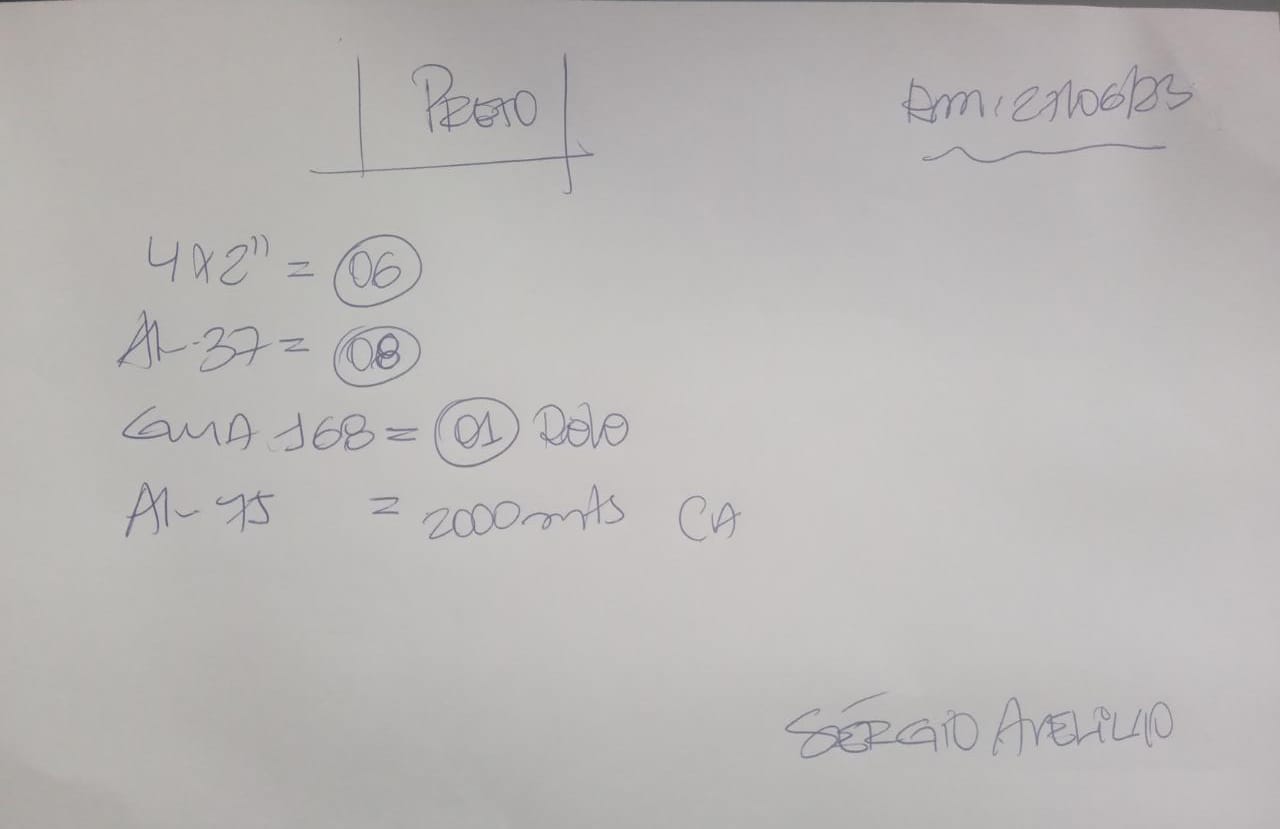 PRETO
Am: 27/06/23
4x2" = 06
AL-37 = 08
GUIA 168 = 01 Rolo
AL-75 = 2000 mts CA
SÉRGIO AVELINO